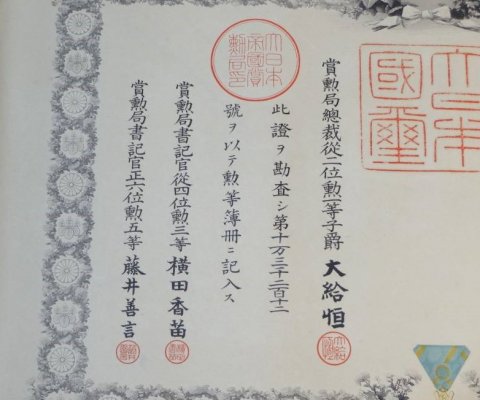 大日本
國璽
賞勲局總裁從二位勲一等子爵 大給恒
大日本
帝國賞
勲局印
此證ヲ勘査シ第十万三千二百十二
號ヲ以テ勲等簿冊ニ記入ス
賞勲局書記官從四位勲三等 横田香苗
賞勲局書記官正六位勲五等 藤井善言